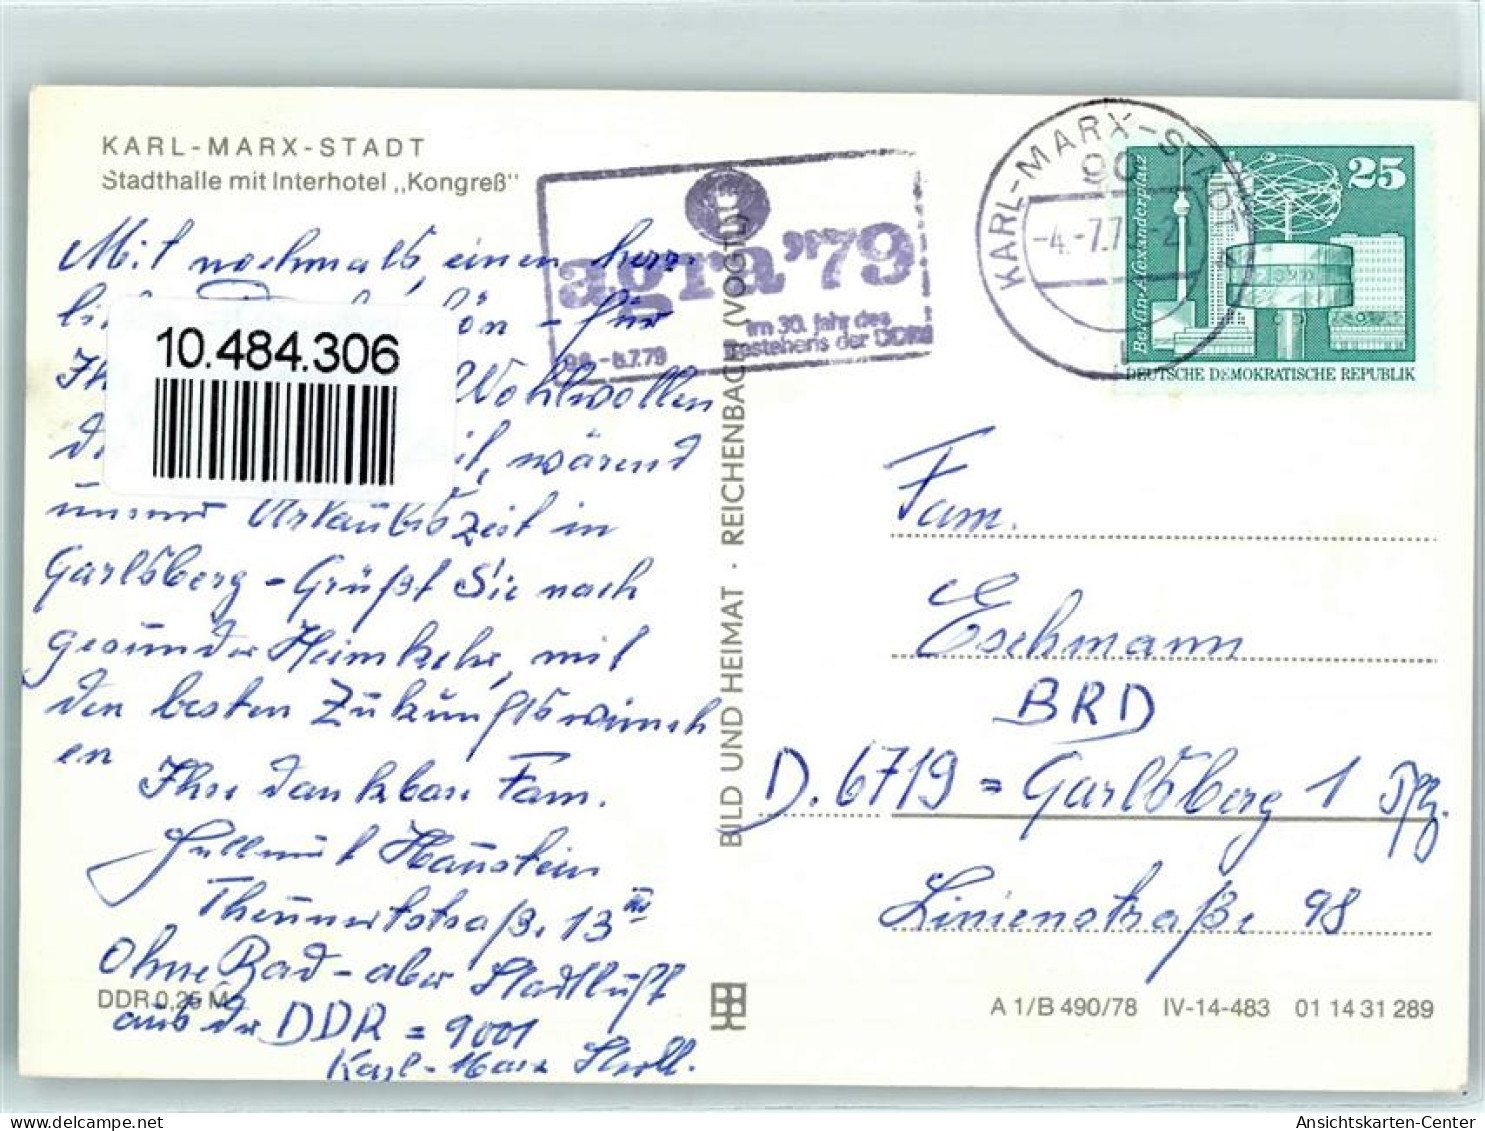 KARL-MARX-STADT
Stadthalle mit Interhotel „Kongreß"
Mit nochmals, einen herz-
lichen Dankeschön - für
Ihr Wohlwollen
wärend
unserer Urlaubszeit in
Garlsberg - Grüßt Sie nach
gesunder Heimkehr, mit
den besten Zukunftswünsch
en
Ihre dankbare Fam.
Hellmut Haustein
Thennertstraße 13
Ohne Bad - aber Stadtluft
aus der DDR = 9001
Karl-Marx Stadt.
DDR 0,25 M
10.484.306
agra'79
im 30. Jahr des
Bestehens der DDR
-8.7.79
BILD UND HEIMAT · REICHENBACH (VOGTL)
KARL-MARX-STADT
90
-4.-7.7 -21
Berlin-Alexanderplatz
25
DEUTSCHE DEMOKRATISCHE REPUBLIK
Fam.
Eschmann
BRD
D. 6719 = Garlsberg 1 Pfz.
Linienstraße 98
A 1/B 490/78 IV-14-483 01 14 31 289
Ansichtskarten-Center